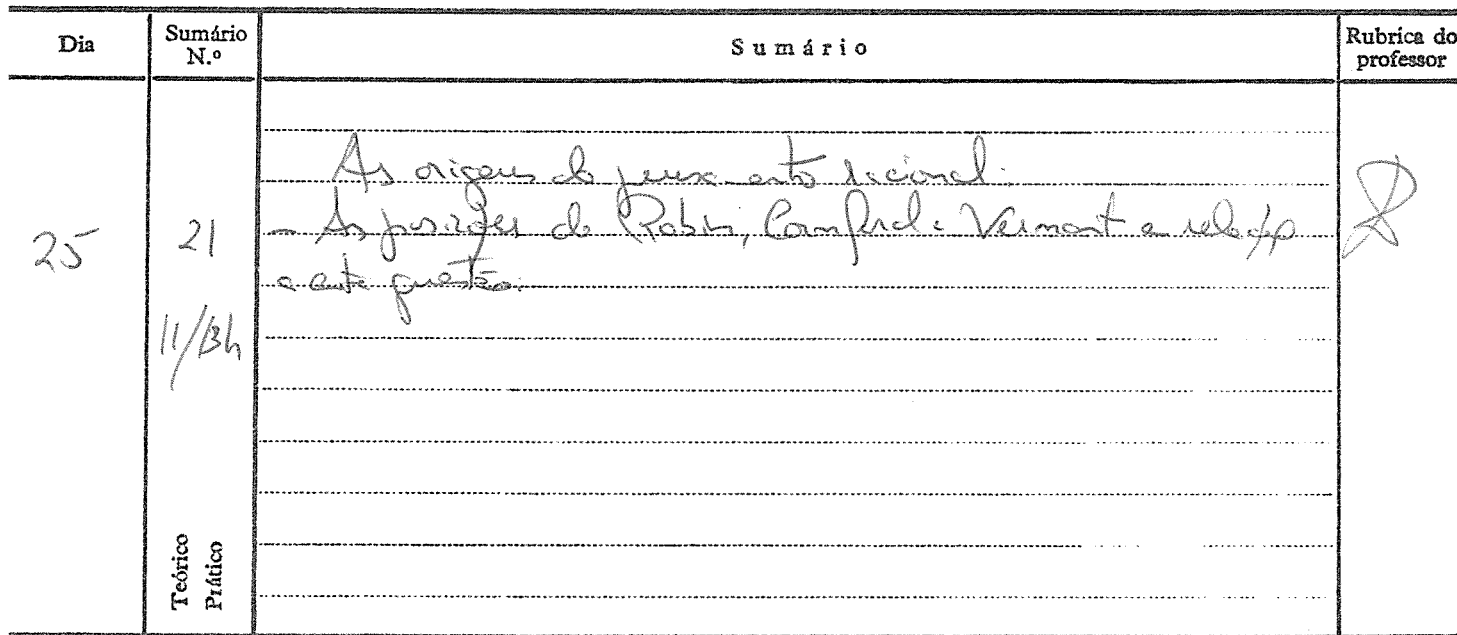 Dia
Sumário N.º
Sumário
Rubrica do professor
25
21
11/13h
Teórico
Prático
As origens do pensamento racional.
- As posições de Robin, Cornford e Vernant em relação
a esta questão.